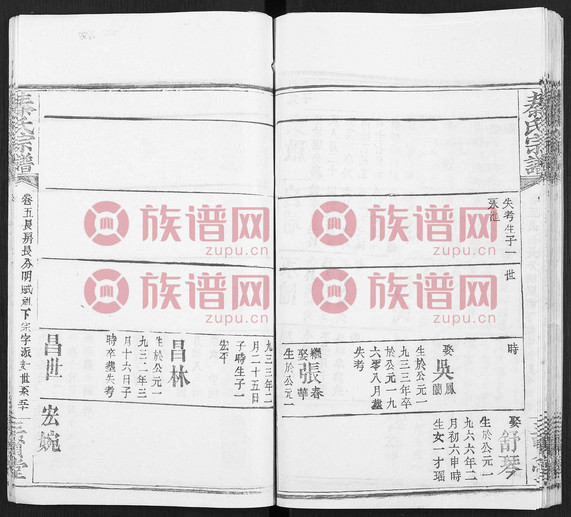 秦氏宗譜
失考生子一
世
時
娶吳鳳蘭
生於公元一
九三三年卒
六零八月墓
失考
繼娶張春華
生於公元一
九三三年二
月二十五日
子時生子一
宏
昌林
生於公元一
九三二年三
月十六日子
時卒墓失考
昌世
娶舒琴
生於公元一
九六六年二
月初六申時
生女一才瑶
宏婉
三
堂
秦氏宗譜
卷五長房長分明威祖下宗字派
族谱网
zupu.cn
族谱网
zupu.cn
族谱网
zupu.cn
族谱网
zupu.cn